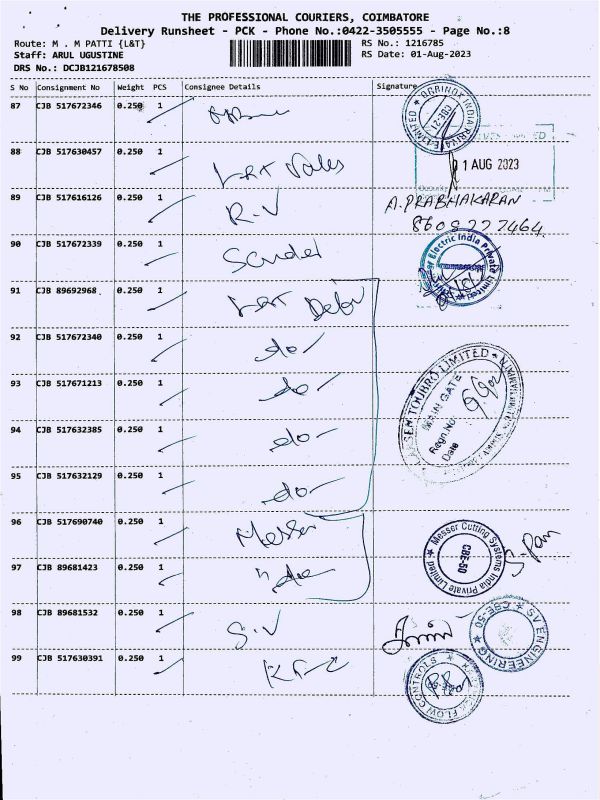 THE PROFESSIONAL COURIERS, COIMBATORE
Delivery Runsheet - PCK - Phone No.:0422-3505555 - Page No.:8
Route: M . M PATTI {L&T} RS No.: 1216785
Staff: ARUL UGUSTINE RS Date: 01-Aug-2023
DRS No.: DCJB121678508
S No Consignment No Weight PCS Consignee Details Signature
87 CJB 517672346 0.250 1
88 CJB 517630457 0.250 1 L&T Valves
01 AUG 2023
89 CJB 517616126 0.250 1 R.V A.PRABHAKARAN
8608777464
90 CJB 517672339 0.250 1
Electric India Private Limited
91 CJB 89692968 0.250 1 L&T
92 CJB 517672340 0.250 1 -do-
93 CJB 517671213 0.250 1 -do-
LARSEN TOUBRO LIMITED
MAIN GATE
Regn.No:
Date
94 CJB 517632385 0.250 1 -do-
95 CJB 517632129 0.250 1 -do-
96 CJB 517690740 0.250 1 Messer
Messer Cutting Systems India Private Limited
CBE-50
97 CJB 89681423 0.250 1
98 CJB 89681532 0.250 1 S.V
SV ENGINEERING
CBE-50
99 CJB 517630391 0.250 1
FLOW CONTROLS